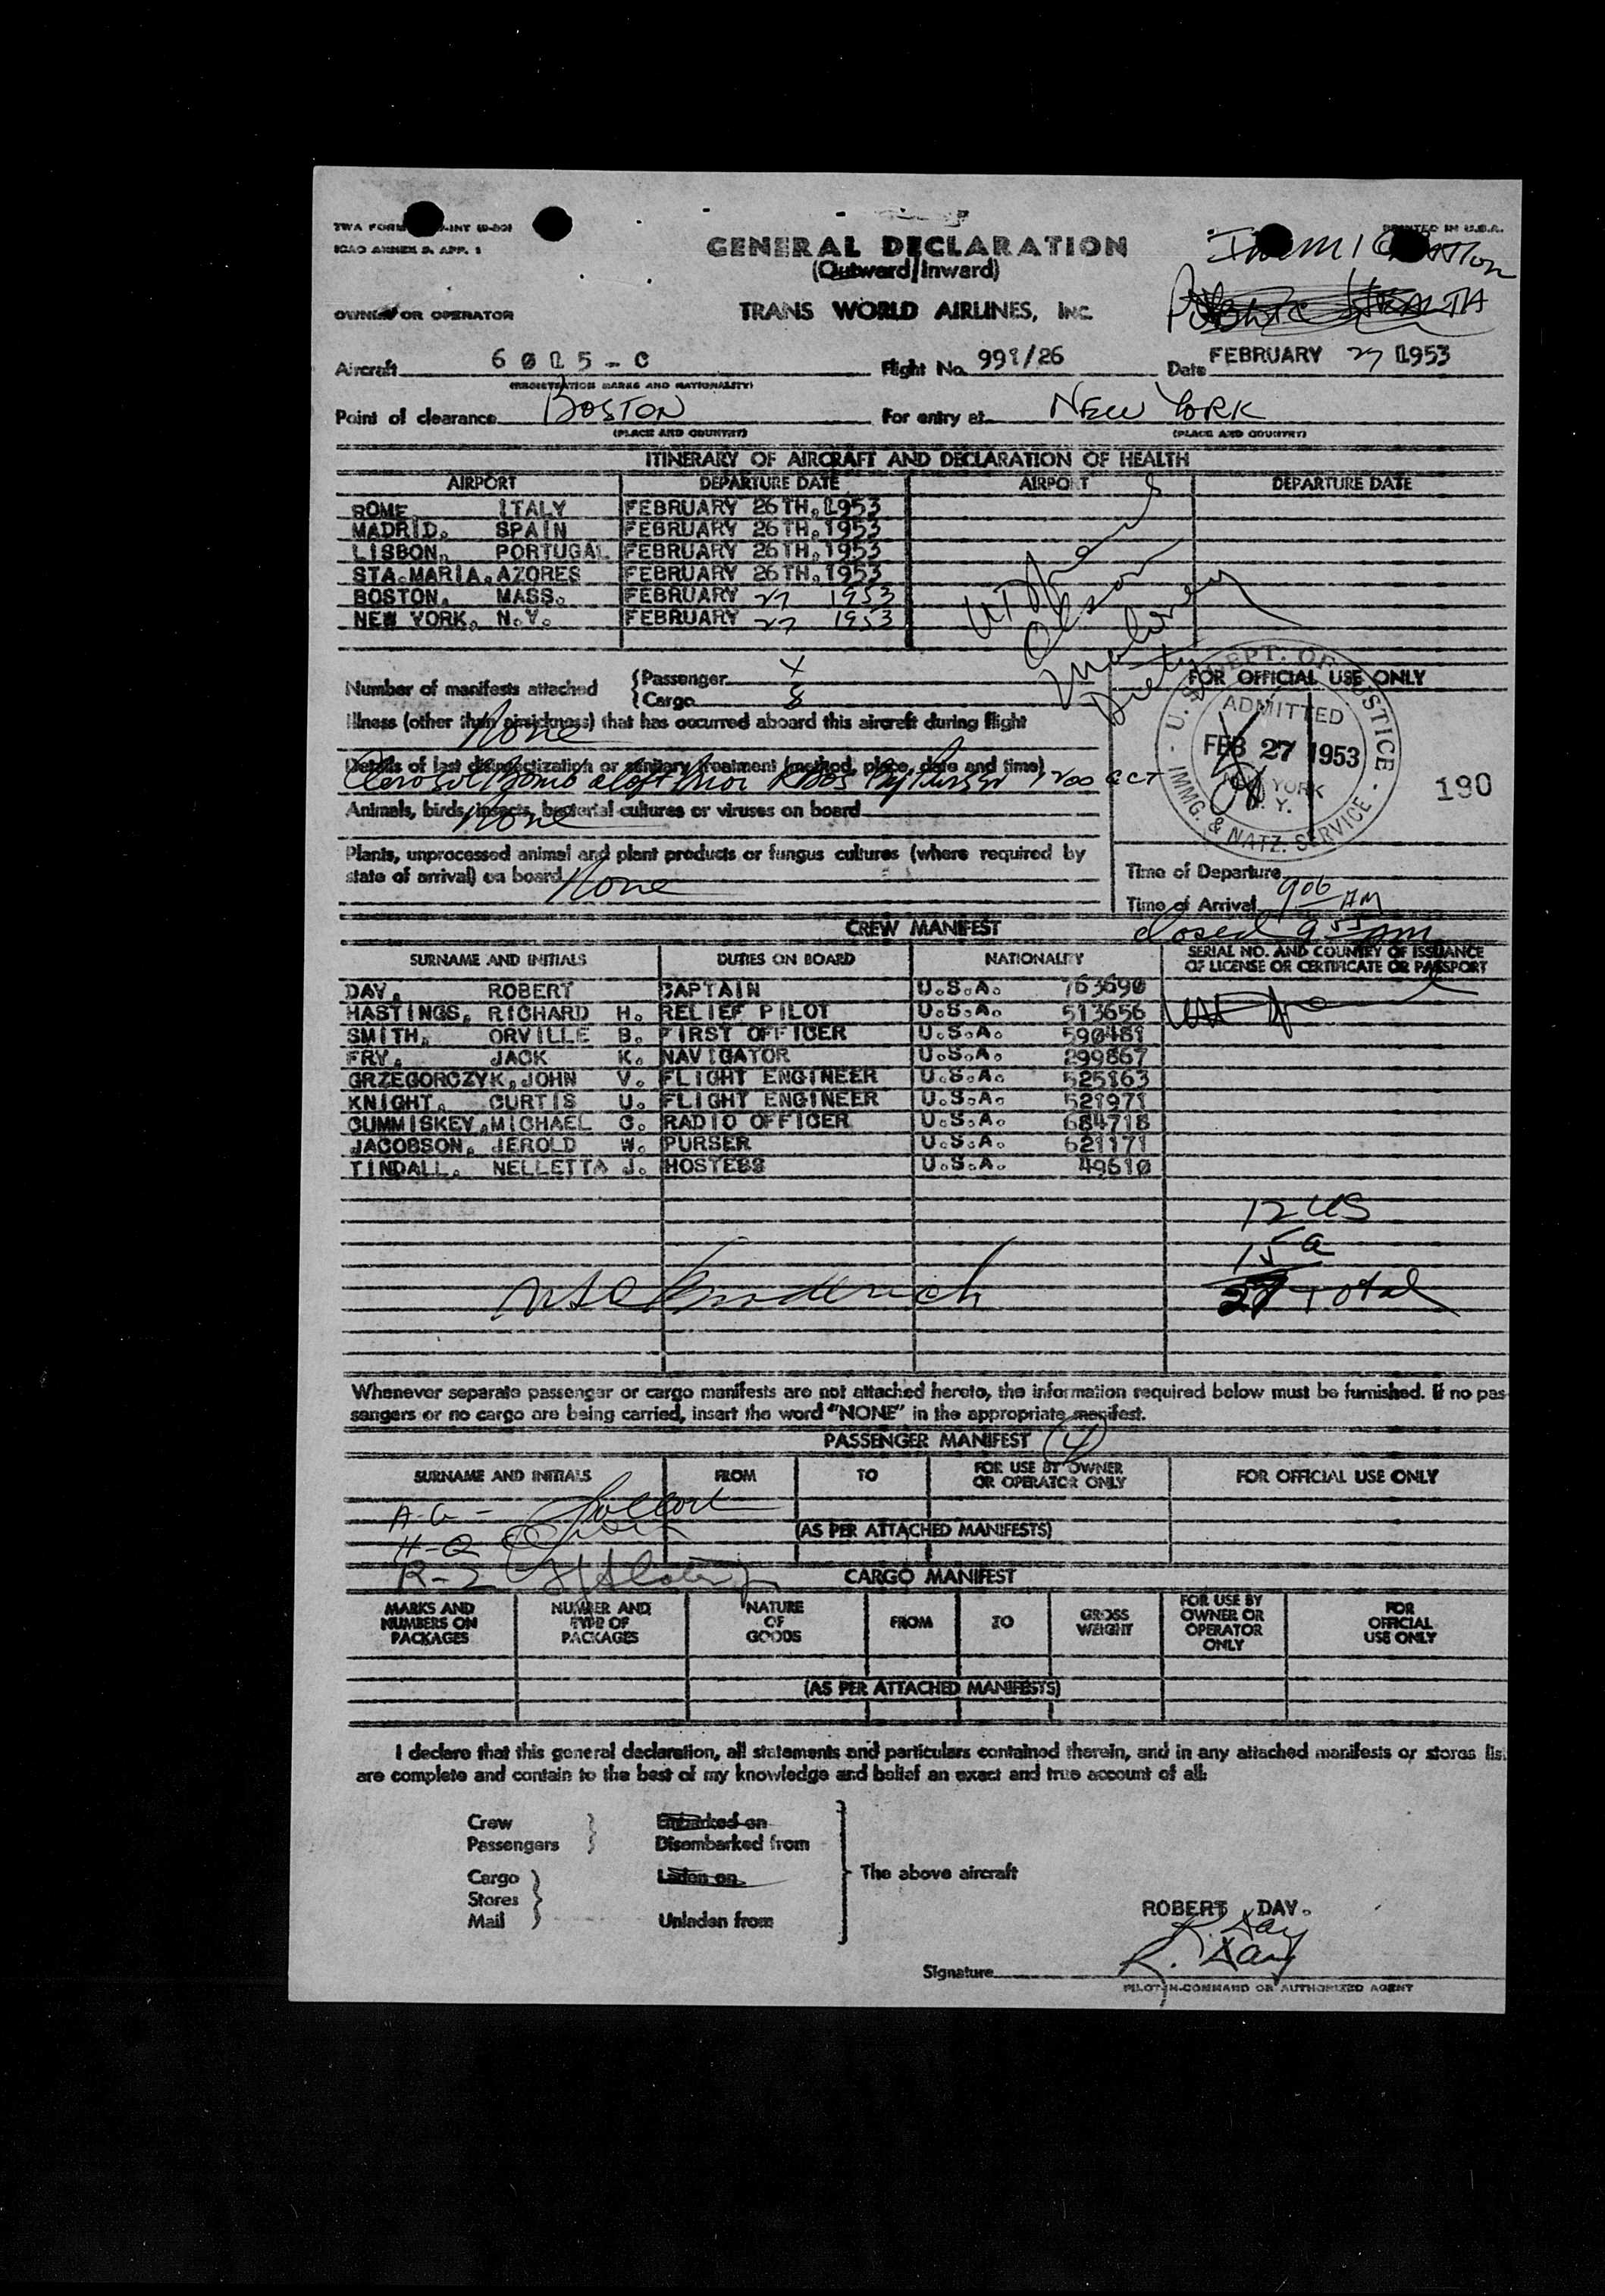 GENERAL DECLARATION
(Outward/Inward)
IMMIGRATION
PUBLIC HEALTH
ICAO ANNEX 9, APP. 1
PRINTED IN U.S.A.
OWNER OR OPERATOR TRANS WORLD AIRLINES, INC.
Aircraft 6015-C Flight No. 991/26 Date FEBRUARY 27 1953
(REGISTRATION MARKS AND NATIONALITY)
Point of clearance BOSTON For entry at NEW YORK
(PLACE AND COUNTRY) (PLACE AND COUNTRY)
ITINERARY OF AIRCRAFT AND DECLARATION OF HEALTH
AIRPORT DEPARTURE DATE AIRPORT DEPARTURE DATE
ROME ITALY FEBRUARY 26TH, 1953
MADRID, SPAIN FEBRUARY 26TH, 1953
LISBON, PORTUGAL FEBRUARY 26TH, 1953
STA.MARIA, AZORES FEBRUARY 26TH, 1953
BOSTON, MASS. FEBRUARY 27 1953
NEW YORK, N.Y. FEBRUARY 27 1953
Olson
Number of manifests attached
Passenger X
Cargo 8
FOR OFFICIAL USE ONLY
U.S. DEPT. OF JUSTICE
ADMITTED
FEB 27 1953
NEW YORK
N. Y.
IMMG. & NATZ. SERVICE
190
Illness (other than airsickness) that has occurred aboard this aircraft during flight
None
Details of last disinsectization or sanitary treatment (method, place, date and time)
Aerosol Bomb aloft 1200 GCT
Animals, birds, insects, bacterial cultures or viruses on board
None
Plants, unprocessed animal and plant products or fungus cultures (where required by
state of arrival) on board None
Time of Departure
Time of Arrival 9 06 AM
closed 9 55 am
CREW MANIFEST
SURNAME AND INITIALS DUTIES ON BOARD NATIONALITY SERIAL NO. AND COUNTRY OF ISSUANCE
OF LICENSE OR CERTIFICATE OR PASSPORT
DAY, ROBERT CAPTAIN U.S.A. 763690
HASTINGS, RICHARD H. RELIEF PILOT U.S.A. 513656
SMITH, ORVILLE B. FIRST OFFICER U.S.A. 590481
FRY, JACK K. NAVIGATOR U.S.A. 299867
GRZEGORCZYK, JOHN V. FLIGHT ENGINEER U.S.A. 525163
KNIGHT, CURTIS U. FLIGHT ENGINEER U.S.A. 521971
CUMMISKEY, MICHAEL C. RADIO OFFICER U.S.A. 684718
JACOBSON, JEROLD W. PURSER U.S.A. 621171
TINDALL, NELLETTA J. HOSTESS U.S.A. 49610
12 US
15 a
27 Total
Whenever separate passenger or cargo manifests are not attached hereto, the information required below must be furnished. If no pas-
sengers or no cargo are being carried, insert the word "NONE" in the appropriate manifest.
PASSENGER MANIFEST (4)
SURNAME AND INITIALS FROM TO FOR USE BY OWNER
OR OPERATOR ONLY FOR OFFICIAL USE ONLY
A-G -
H-Q
R-Z
(AS PER ATTACHED MANIFESTS)
CARGO MANIFEST
MARKS AND
NUMBERS ON
PACKAGES
NUMBER AND
TYPE OF
PACKAGES
NATURE
OF
GOODS
FROM
TO
GROSS
WEIGHT
FOR USE BY
OWNER OR
OPERATOR
ONLY
FOR
OFFICIAL
USE ONLY
(AS PER ATTACHED MANIFESTS)
I declare that this general declaration, all statements and particulars contained therein, and in any attached manifests or stores lis
are complete and contain to the best of my knowledge and belief an exact and true account of all:
Crew Embarked on
Passengers Disembarked from
Cargo Laden on The above aircraft
Stores
Mail Unladen from
ROBERT DAY.
R. Day
R. Day
Signature
PILOT-IN-COMMAND OR AUTHORIZED AGENT